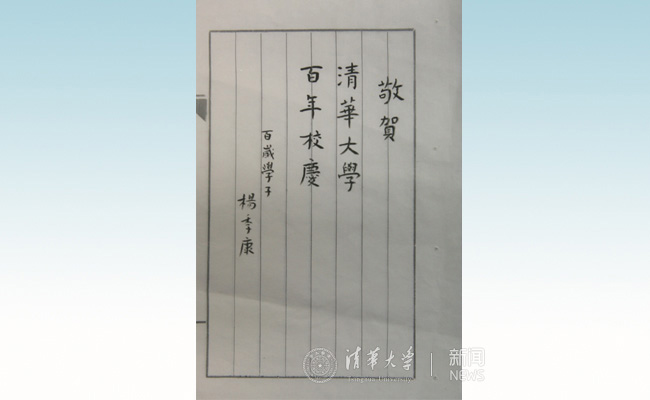 敬賀
清華大學
百年校慶
百歲學子
楊季康
清華大學
Tsinghua University
新闻
NEWS